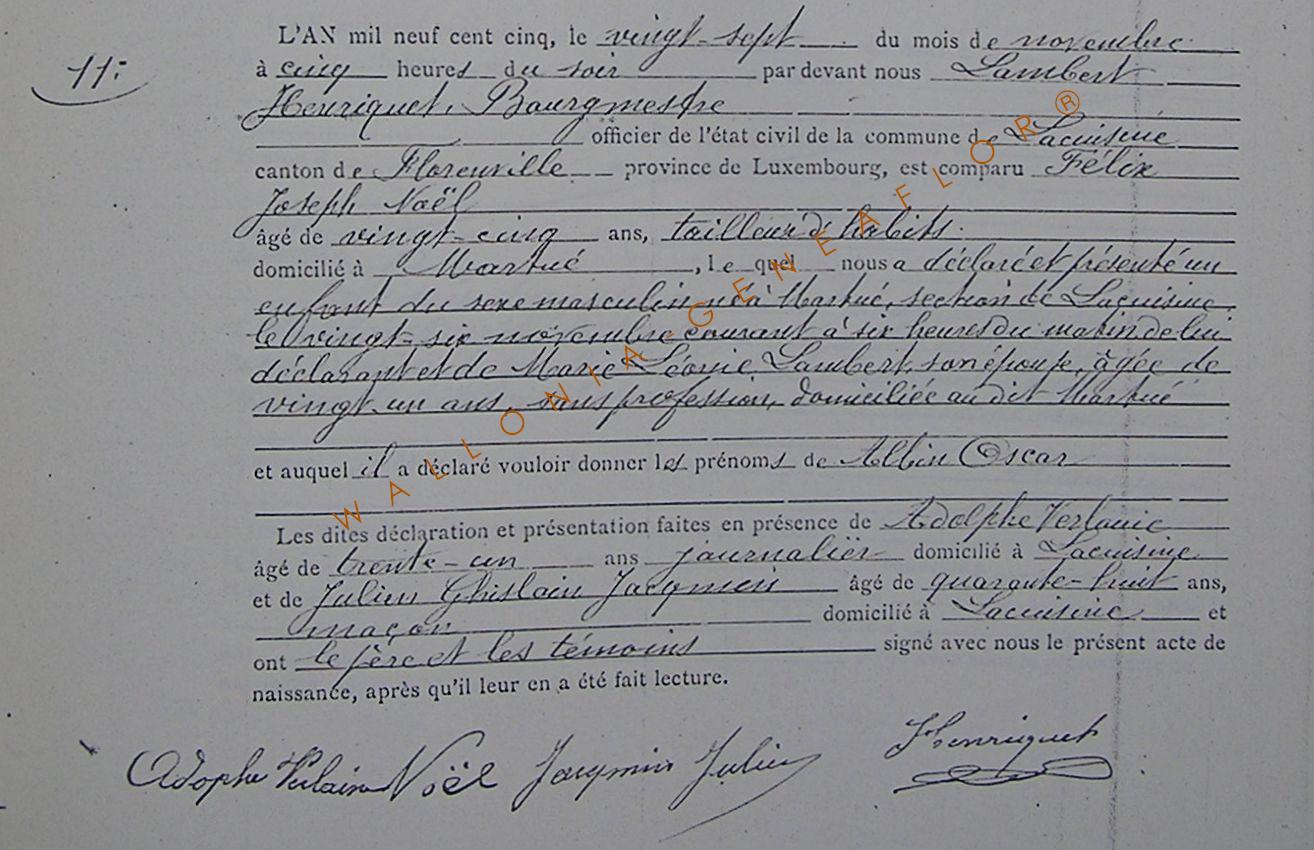 L'AN mil neuf cent cinq, le vingt-sept du mois de novembre
11.
à cinq heures du soir par devant nous Lambert
Henriquet, Bourgmestre
officier de l'état civil de la commune de Lacuisine
canton de Florenville province de Luxembourg, est comparu Félix
Joseph Noël
âgé de vingt-cinq ans, tailleur d'habits.
domicilié à Martué, lequel nous a déclaré et présenté un
enfant du sexe masculin né à Martué, section de Lacuisine
le vingt-six novembre courant à six heures du matin de lui
déclarant et de Marie Léonie Lambert, son épouse, âgée de
vingt-un ans, sans profession, domiciliée au dit Martué
et auquel il a déclaré vouloir donner les prénoms de Albin Oscar
Les dites déclaration et présentation faites en présence de Adolphe Verlaine
âgé de trente-un ans journalier domicilié à Lacuisine
et de Julien Ghislain Jacqmin âgé de quarante-huit ans,
maçon domicilié à Lacuisine et
ont le père et les témoins signé avec nous le présent acte de
naissance, après qu'il leur en a été fait lecture.
Adophe Verlaine Noël Jacqmin Julien Henriquet
WALLONIA GENEAFLOR®